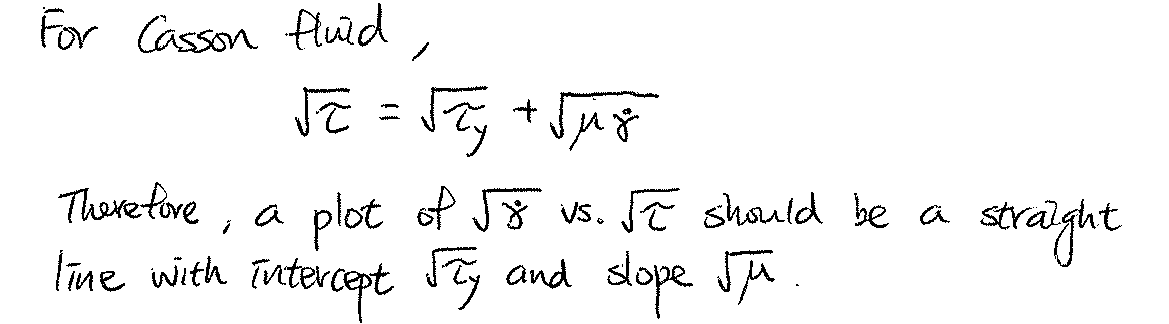 For Casson fluid,
√τ = √τy + √μγ̇
Therefore, a plot of √γ̇ vs. √τ should be a straight
line with intercept √τy and slope √μ.